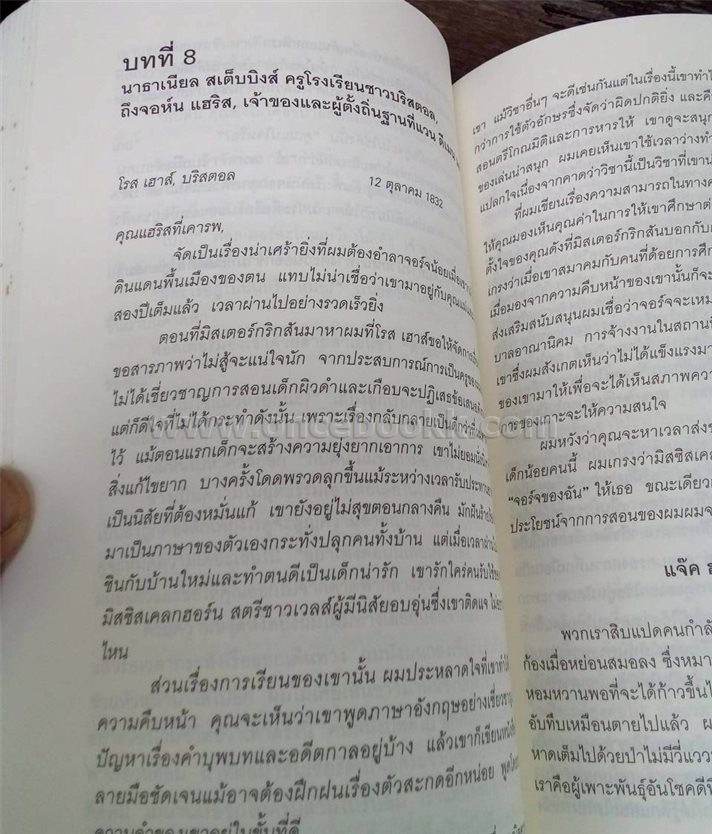 บทที่ 8
นาธาเนียล สเต็บบิงส์ ครูโรงเรียนชาวบริสตอล,
ถึงจอห์น แฮริส, เจ้าของและผู้ตั้งถิ่นฐานที่แวน ดีเมน
โรส เฮาส์, บริสตอล
12 ตุลาคม 1832
คุณแฮริสที่เคารพ,
จัดเป็นเรื่องน่าเศร้ายิ่งที่ผมต้องอำลาจอร์จน้อยเมื่อเขา
ดินแดนพื้นเมืองของตน แทบไม่น่าเชื่อว่าเขามาอยู่กับคุณ
สองปีเต็มแล้ว เวลาผ่านไปอย่างรวดเร็วยิ่ง
ตอนที่มิสเตอร์กริกสันมาหาผมที่โรส เฮาส์ขอให้จัดการ
ขอสารภาพว่าไม่สู้จะแน่ใจนัก จากประสบการณ์การเป็นครูของ
ไม่ได้เชี่ยวชาญการสอนเด็กผิวดำและเกือบจะปฏิเสธข้อเสนอ
แต่ก็ดีใจที่ไม่ได้กระทำดังนั้น เพราะเรื่องกลับกลายเป็นดีกว่า
ไว้ แม้ตอนแรกเด็กจะสร้างความยุ่งยากเอาการ เขาไม่ยอม
สิ่งแก้ไขยาก บางครั้งโดดพรวดลุกขึ้นแม้ระหว่างเวลารับประทาน
เป็นนิสัยที่ต้องหมั่นแก้ เขายังอยู่ไม่สุขตอนกลางคืน มักฝันร้าย
มาเป็นภาษาของตัวเองกระทั่งปลุกคนทั้งบ้าน แต่เมื่อเวลาผ่านไป
ชินกับบ้านใหม่และทำตนดีเป็นเด็กน่ารัก เขารักใคร่คนรับใช้
มิสซิสเคลกฮอร์น สตรีชาวเวลส์ผู้มีนิสัยอบอุ่นซึ่งเขาติดแจ
ไหน
ส่วนเรื่องการเรียนของเขานั้น ผมประหลาดใจที่เขาทำได้
ความคืบหน้า คุณจะเห็นว่าเขาพูดภาษาอังกฤษอย่างเชี่ยวชาญ
ปัญหาเรื่องคำบุพบทและอดีตกาลอยู่บ้าง แล้วเขาก็เขียนหนังสือ
ลายมือชัดเจนแม้อาจต้องฝึกฝนเรื่องตัวสะกดอีกหน่อย
ความจำของเขาอยู่ในขั้นที่ดี
เขา แม้วิชาอื่นๆ จะดีเช่นกันแต่ในเรื่องนี้เขาทำได้
กว่าการใช้ตัวอักษรซึ่งจัดว่าผิดปกติยิ่ง และ
สอนตรีโกณมิติและการหารให้ เขาดูจะสนุก
ของเล่นน่าสนุก ผมเคยเห็นเขาใช้เวลาว่าง
แปลกใจเนื่องจากคาดว่าวิชานี้เป็นวิชาที่เขา
ที่ผมเขียนเรื่องความสามารถในทาง
ให้คุณมองเห็นคุณค่าในการให้เขาศึกษา
ตั้งใจของคุณดังที่มิสเตอร์กริกสันบอกกับ
เกรงว่าเมื่อเขาสมาคมกับคนที่ด้อยการศึก
เมื่อมองจากความคืบหน้าของเขานั้นก็จะ
ส่งเสริมสนับสนุนผมเชื่อว่าจอร์จจะเหม
บาลอาณานิคม การจ้างงานในสถาน
เขาซึ่งผมสังเกตเห็นว่าไม่ได้แข็งแรง
ของเขามาให้เพื่อจะได้เห็นสภาพความ
การของเกาะจะให้ความสนใจ
ผมหวังว่าคุณจะหาเวลาส่ง
เด็กน้อยคนนี้ ผมเกรงว่ามิสซิสเคล
"จอร์จของฉัน" ให้เธอ ขณะเดียว
ประโยชน์จากการสอนของผมผม
แจ๊ค
พวกเราสิบแปดคนกำลัง
ก้องเมื่อหย่อนสมอลง ซึ่งหมา
หอมหวานพอที่จะได้ก้าวขึ้น
อับทึบเหมือนตายไปแล้ว
หาดเต็มไปด้วยป่าไม่มีวี่แวว
เราคือผู้เพาะพันธุ์อันโชคดี
www.oncebookie.com